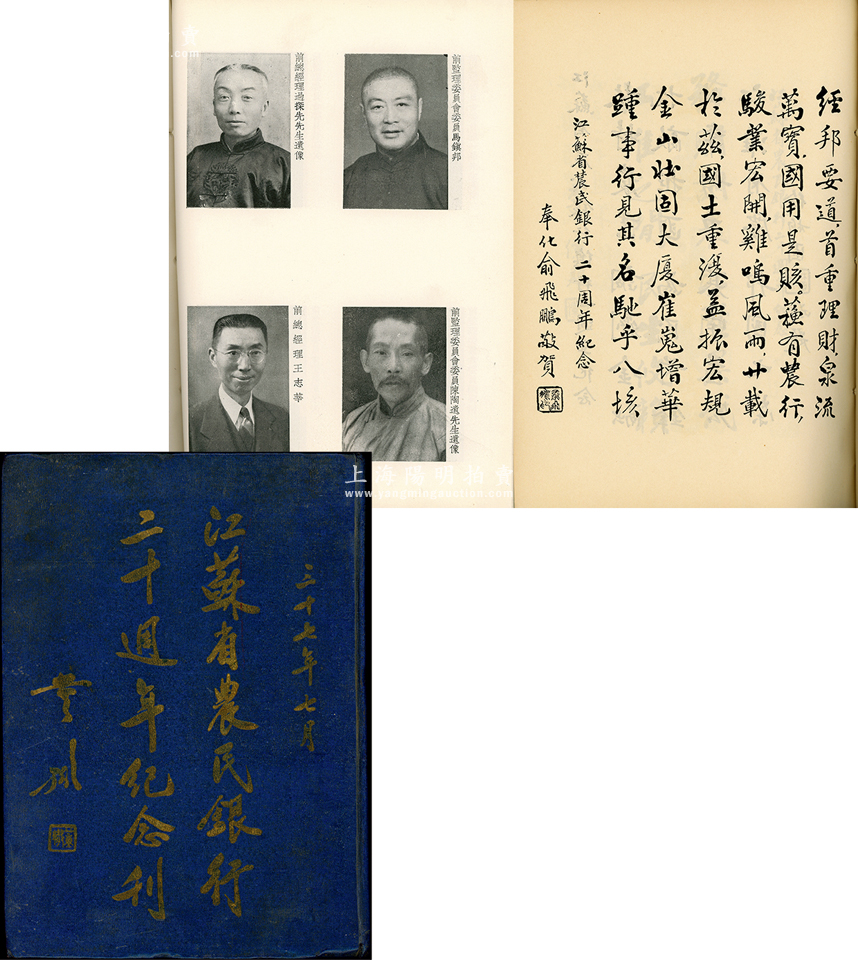 前監理委員會委員馬鎭邦
前總經理過探先先生遺像
前監理委員會委員陳陶遺先生遺像
前總經理王志莘
經邦要道，首重理財，泉流
萬寶，國用是賅。蘇有農行，
駿業宏開，雞鳴風雨，廿載
於茲，國土重復，益振宏規，
金山壯固，大廈崔嵬，增華
踵事，行見其名馳乎八垓，
江蘇省農民銀行二十周年紀念
奉化俞飛鵬敬賀
三十七年七月
江蘇省農民銀行
二十週年紀念刊
上海陽明拍賣
www.yangmingauction.com